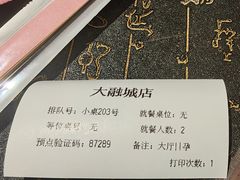 大融城店
排队号：小桌203号 就餐桌位：无
等位桌号：无 就餐人数：2
预点验证码：87289 备注：大厅||孕
打印次数：1